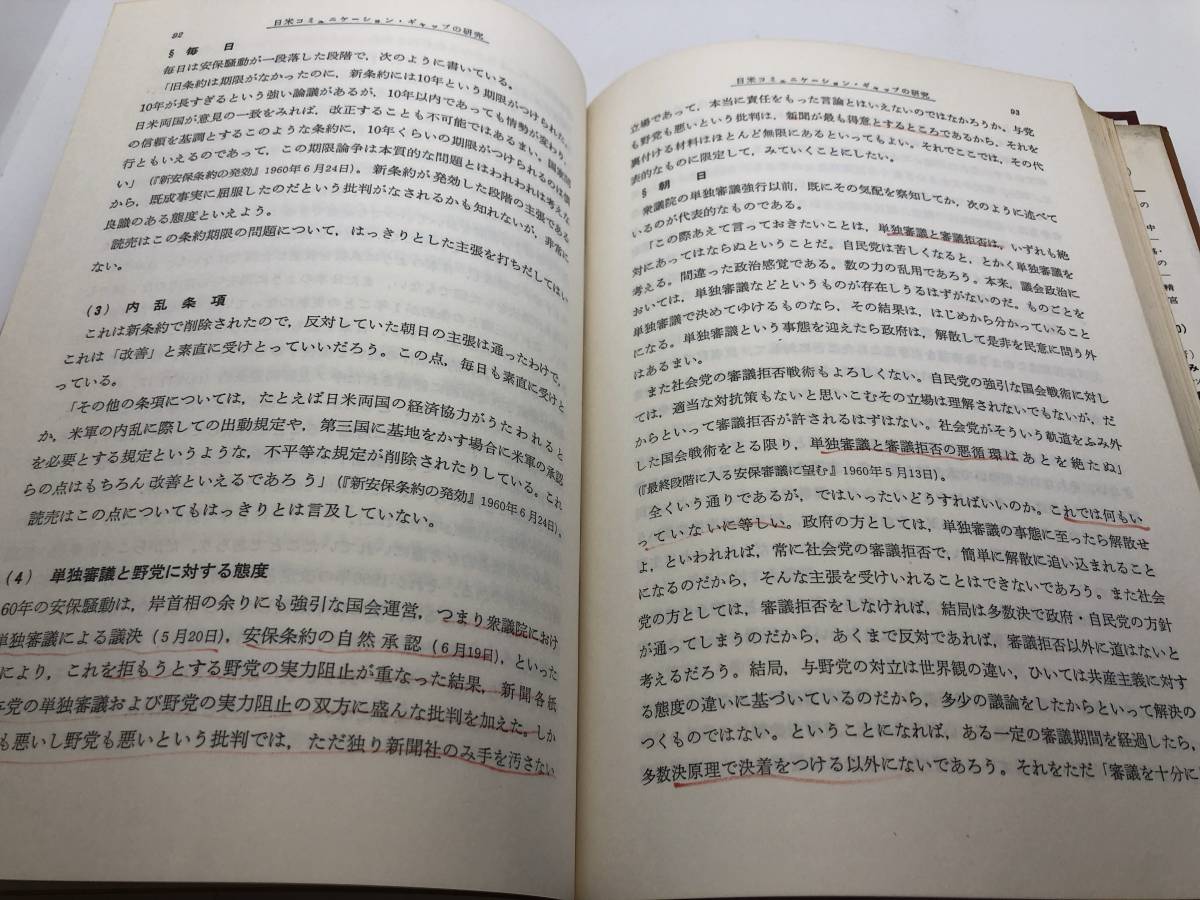 92
日米コミュニケーション・ギャップの研究
§ 毎 日
毎日は安保騒動が一段落した段階で，次のように書いている。
「旧条約は期限がなかったのに，新条約には10年という期限がつけられた。
10年が長すぎるという強い論議があるが，10年以内であっても情勢が変わり，
日米両国が意見の一致をみれば，改正することも不可能ではあるまい。国家間
の信頼を基調とするこのような条約に，10年くらいの期限がつけられるのは慣
行ともいえるのであって，この期限論争は本質的な問題とはわれわれは考えな
い」(『新安保条約の発効』1960年6月24日)。新条約が発効した段階の主張である
から，既成事実に屈服したのだという批判がなされるかも知れないが，非常に
良識のある態度といえよう。
読売はこの条約期限の問題について，はっきりとした主張を打ちだしてはい
ない。
(3) 内 乱 条 項
これは新条約で削除されたので，反対していた朝日の主張は通ったわけで，
これは「改善」と素直に受けとっていいだろう。この点，毎日も素直に受けと
っている。
「その他の条項については，たとえば日米両国の経済協力がうたわれると
か，米軍の内乱に際しての出動規定や，第三国に基地をかす場合に米軍の承認
を必要とする規定というような，不平等な規定が削除されたりしている。これ
らの点はもちろん改善といえるであろう」(『新安保条約の発効』1960年6月24日)。
読売はこの点についてもはっきりとは言及していない。
(4) 単独審議と野党に対する態度
60年の安保騒動は，岸首相の余りにも強引な国会運営，つまり衆議院におけ
単独審議による議決(5月20日)，安保条約の自然承認(6月19日)，といった
により，これを拒もうとする野党の実力阻止が重なった結果，新聞各紙
党の単独審議および野党の実力阻止の双方に盛んな批判を加えた。しか
も悪いし野党も悪いという批判では，ただ独り新聞社のみ手を汚さない
日米コミュニケーション・ギャップの研究
93
立場であって，本当に責任をもった言論とはいえないのではなかろうか。与党
も野党も悪いという批判は，新聞が最も得意とするところであるから，それを
裏付ける材料はほとんど無限にあるといってもよい。それでここでは，その代
表的なものに限定して，みていくことにしたい。
§ 朝 日
衆議院の単独審議強行以前，既にその気配を察知してか，次のように述べて
いるのが代表的なものである。
「この際あえて言っておきたいことは，単独審議と審議拒否は，いずれも絶
対にあってはならぬということだ。自民党は苦しくなると，とかく単独審議を
考える。間違った政治感覚である。数の力の乱用であろう。本来，議会政治に
おいては，単独審議などというものが存在しうるはずがないのだ。ものごとを
単独審議で決めてゆけるものなら，その結果は，はじめから分かっていること
になる。単独審議という事態を迎えたら政府は，解散して是非を民意に問う外
はあるまい。
また社会党の審議拒否戦術もよろしくない。自民党の強引な国会戦術に対し
ては，適当な対抗策もないと思いこむその立場は理解されないでもないが，だ
からといって審議拒否が許されるはずはない。社会党がそういう軌道をふみ外
した国会戦術をとる限り，単独審議と審議拒否の悪循環はあとを絶たぬ」
(『最終段階に入る安保審議に望む』1960年5月13日)。
全くいう通りであるが，ではいったいどうすればいいのか。これでは何もい
っていないに等しい。政府の方としては，単独審議の事態に至ったら解散せ
よ，といわれれば，常に社会党の審議拒否で，簡単に解散に追い込まれること
になるのだから，そんな主張を受けいれることはできないであろう。また社会
党の方としては，審議拒否をしなければ，結局は多数決で政府・自民党の方針
が通ってしまうのだから，あくまで反対であれば，審議拒否以外に道はないと
考えるだろう。結局，与野党の対立は世界観の違い，ひいては共産主義に対す
る態度の違いに基づいているのだから，多少の議論をしたからといって解決の
つくものではない。ということになれば，ある一定の審議期間を経過したら，
多数決原理で決着をつける以外にないであろう。それをただ「審議を十分に